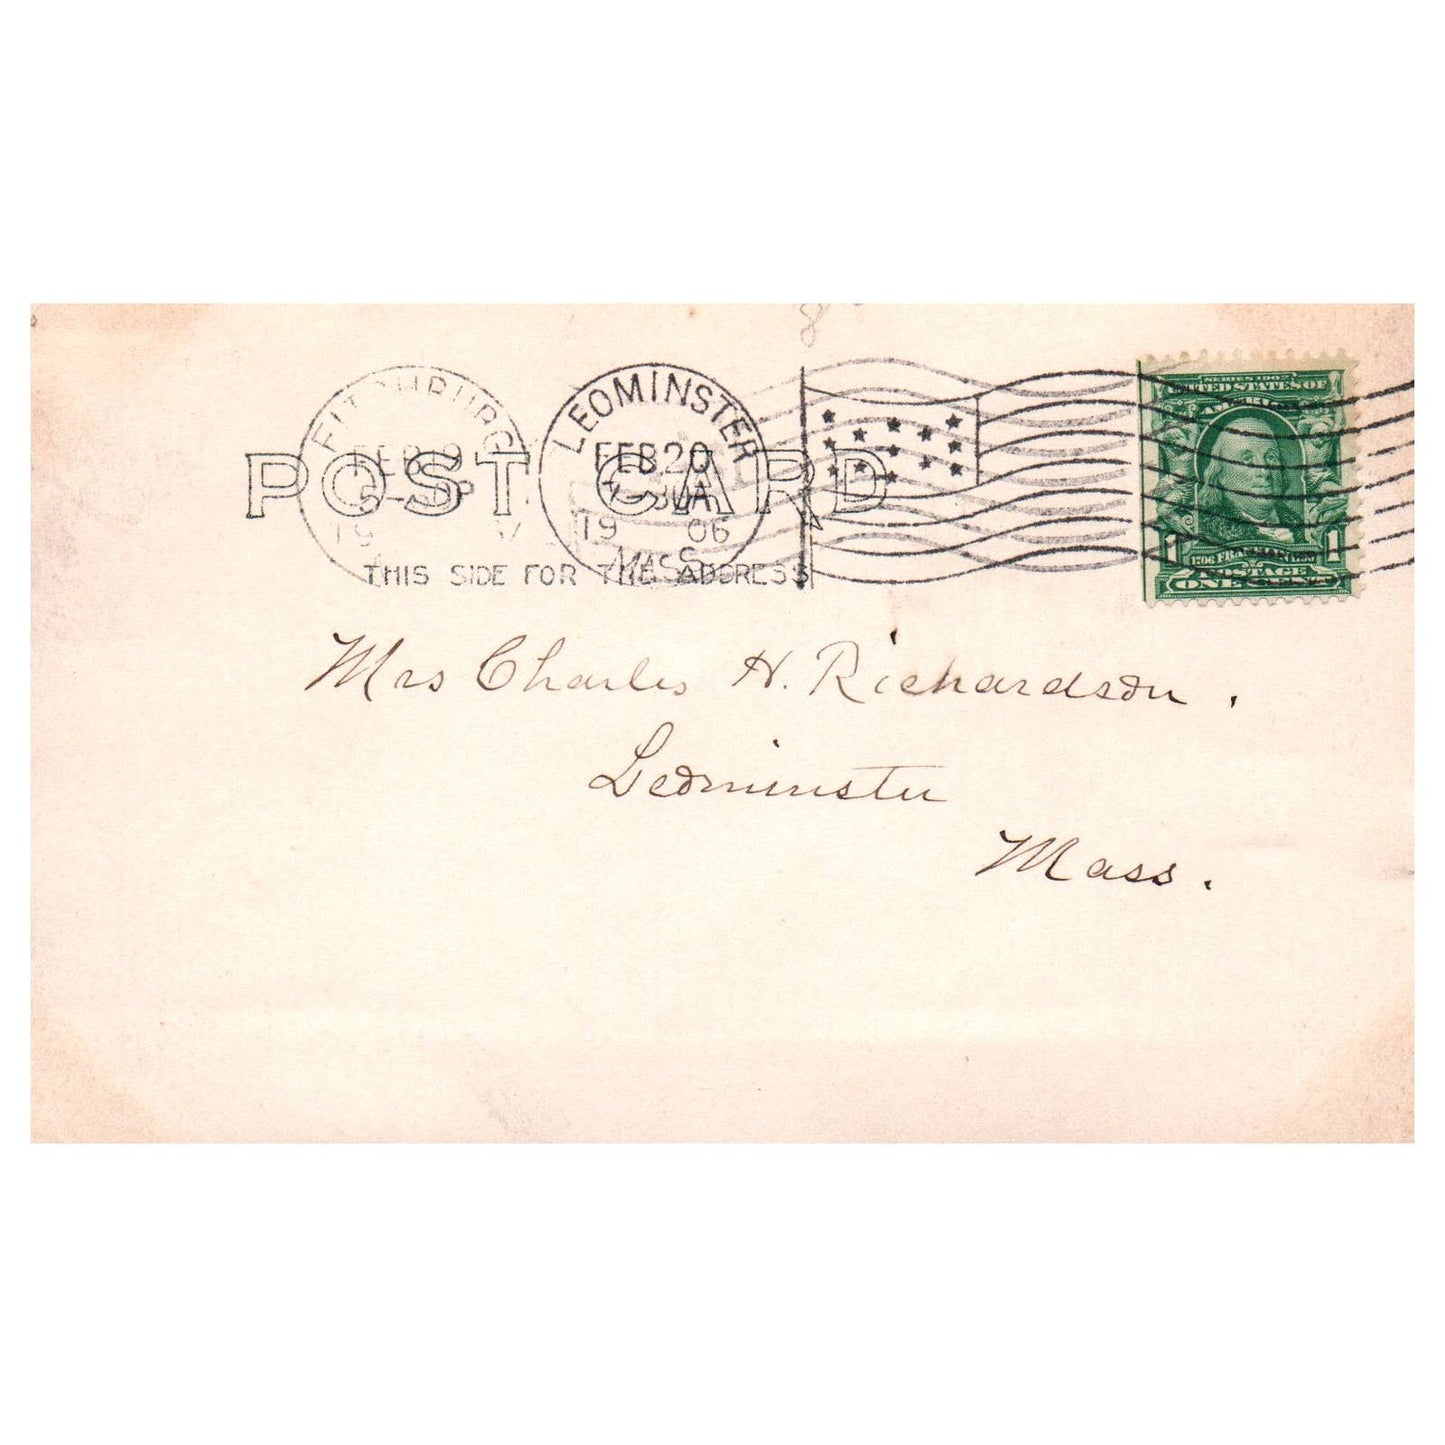 FITCHBURG
FEB 9
19
LEOMINSTER
FEB 20
19 06
MASS.
POST CARD
THIS SIDE FOR THE ADDRESS
SERIES 1902
UNITED STATES OF
AMERICA
1 1
POSTAGE
ONE CENT
Mrs Charles H. Richardson.
Leominster
Mass.